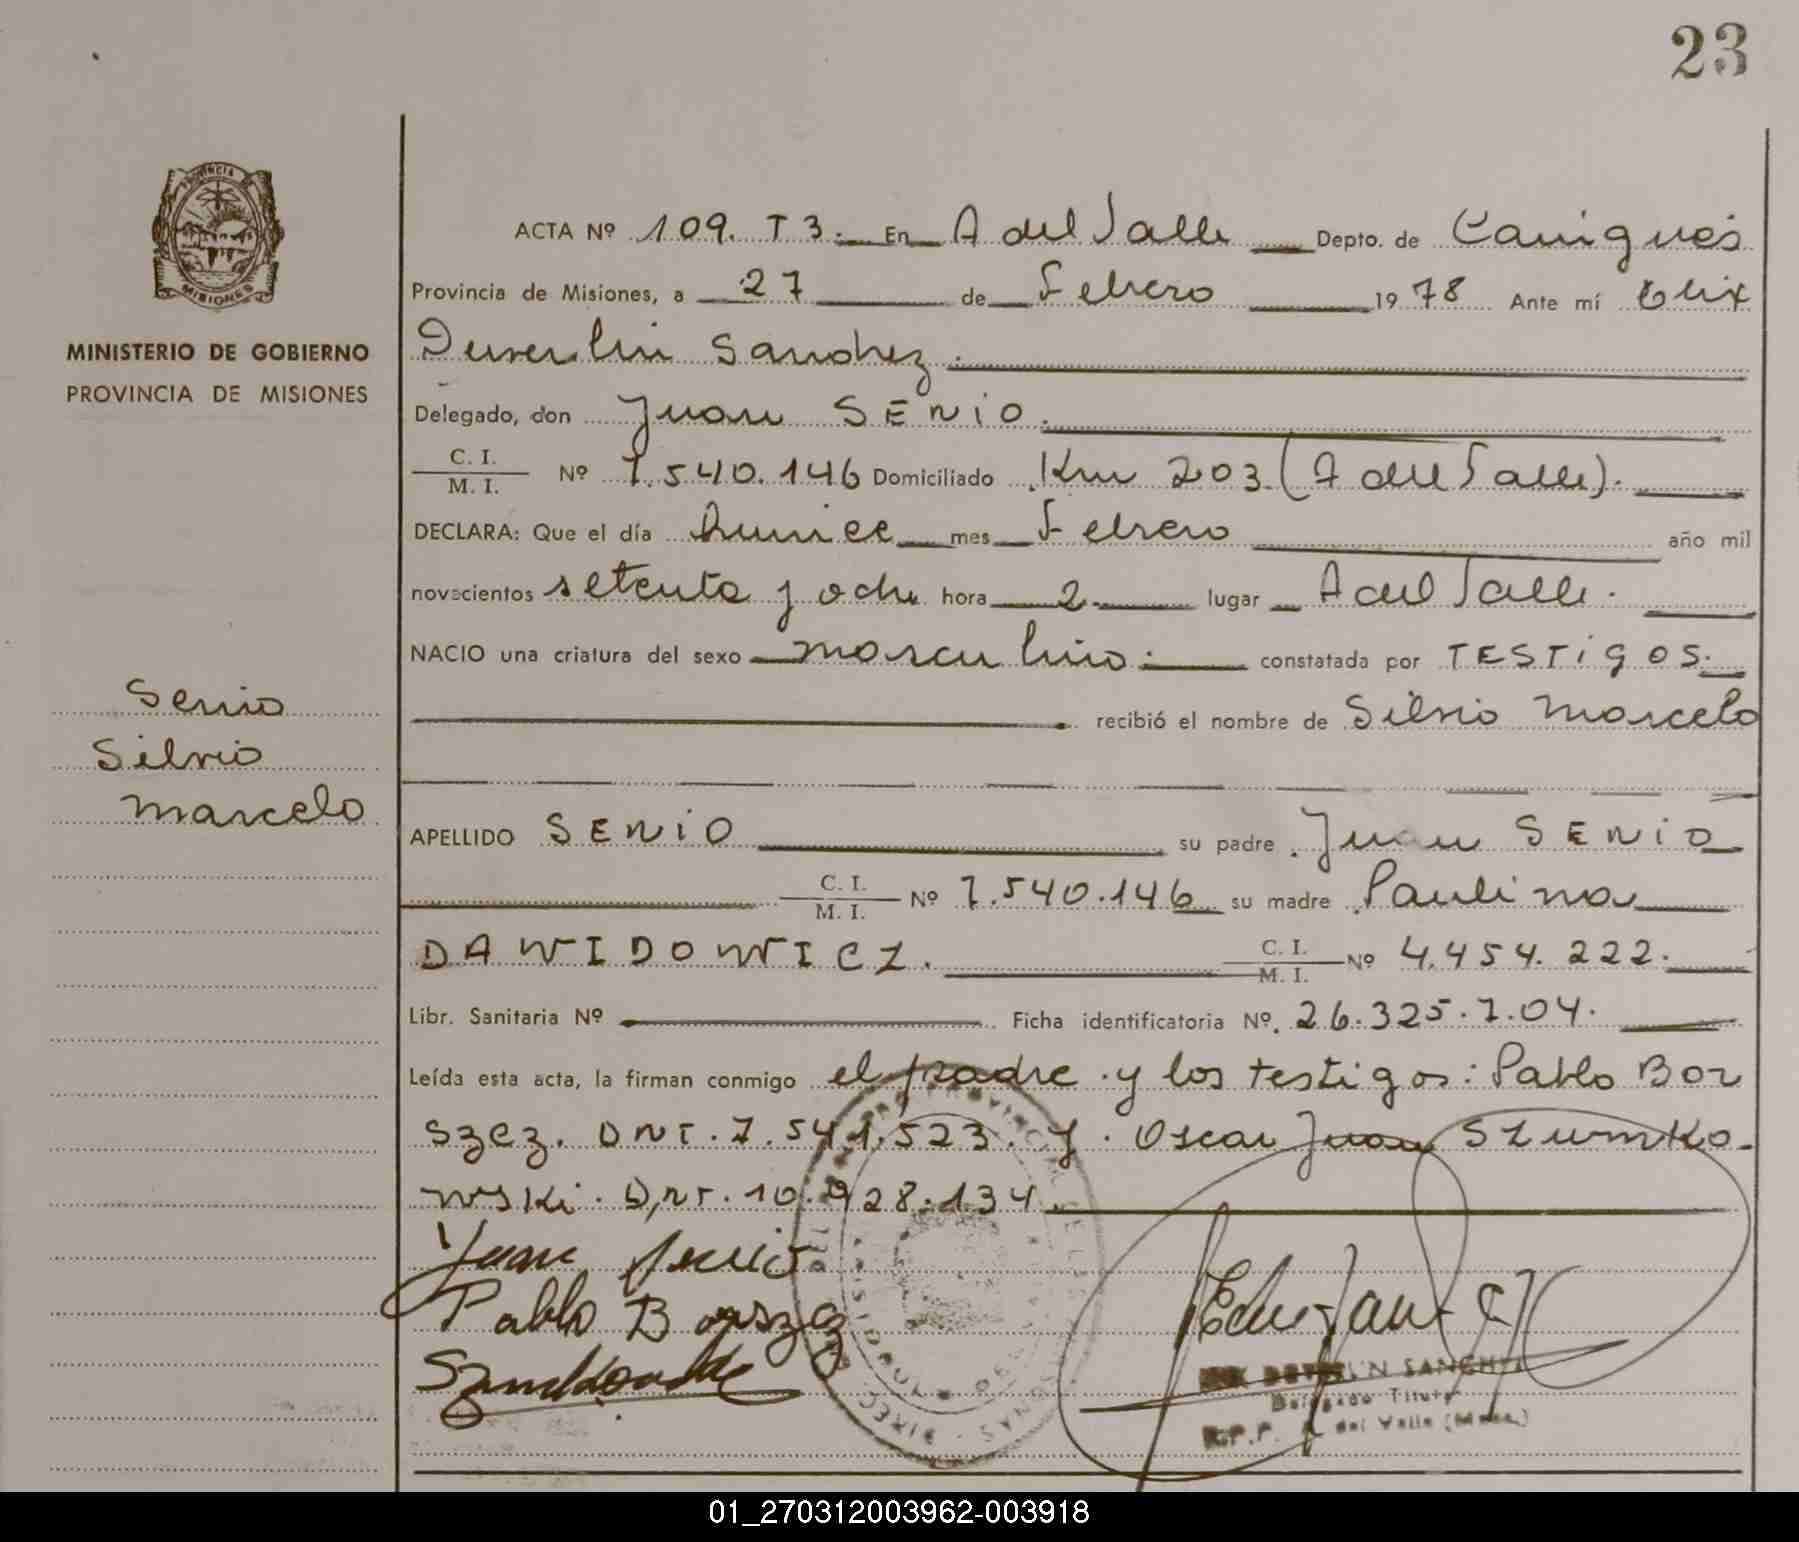 23
PROVINCIA DE
MISIONES
MINISTERIO DE GOBIERNO
PROVINCIA DE MISIONES
ACTA Nº 109. T 3. En A del Valle Depto. de Cainguás
Provincia de Misiones, a 27 de Febrero 1978 Ante mí Elix
Duverlin Sanchez.
Delegado, don Juan SENIO.
C. I.
M. I.
Nº 7.540.146 Domiciliado Km 203 (A del Valle).
DECLARA: Que el día Quince mes Febrero año mil
novecientos setenta y ocho hora 2. lugar A del Valle.
NACIO una criatura del sexo masculino. constatada por TESTiGOS.
recibió el nombre de Silvio Marcelo
Senio
Silvio
Marcelo
APELLIDO SENIO su padre Juan SENIO
C. I.
M. I.
Nº 7.540.146 su madre Paulina
DAWIDOWICZ.
C. I.
M. I.
Nº 4.454.222.
Libr. Sanitaria Nº Ficha identificatoria Nº 26.325.704.
Leída esta acta, la firman conmigo el padre y los testigos: Pablo Bor
szcz. DNI. 7.541.523. y. Oscar Juan Szumko-
wski. DNI. 10.928.134.
Juan Senio
Pablo Borszcz
SANCHEZ
Delegado Titular
R.P.P. A. del Valle (Mnes.)
01_270312003962-003918